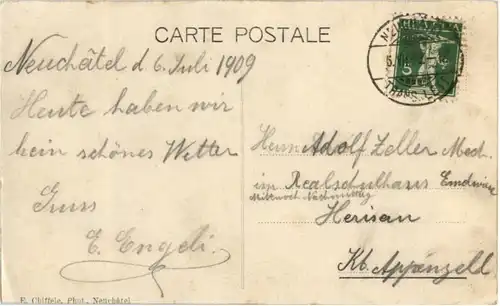 CARTE POSTALE
Neuchâtel d 6. Juli 1909
Heute haben wir
kein schönes Wetter
Gruss
E. Engeli.
Herrn Adolf Zeller Mech.
im Realschulhaus
Mittwoch Nachmittag
Herisau
Kt. Appenzell
E. Chiffele, Phot., Neuchâtel
5